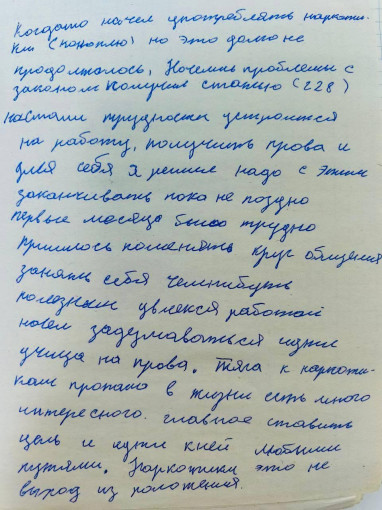 Когдато начел употреблять наркоти-
ки (коноплю) но это долго не
продолжалось, Начелись проблемы с
законом получил статью (228)
настали трудности устроится
на работу, получить права и
для себя я решил надо с этим
заканчивать пока не поздно
первые месяца было трудно
пришлось поменять круг общения
занять себя чемнибуть
полезным увлекся работой
начел задумаваться идти
учица на права. Тяга к наркоти-
кам пропала в жизни есть много
интересного. главное ставить
цель и идти к ней любыми
путями. Наркотики это не
выход из положения.